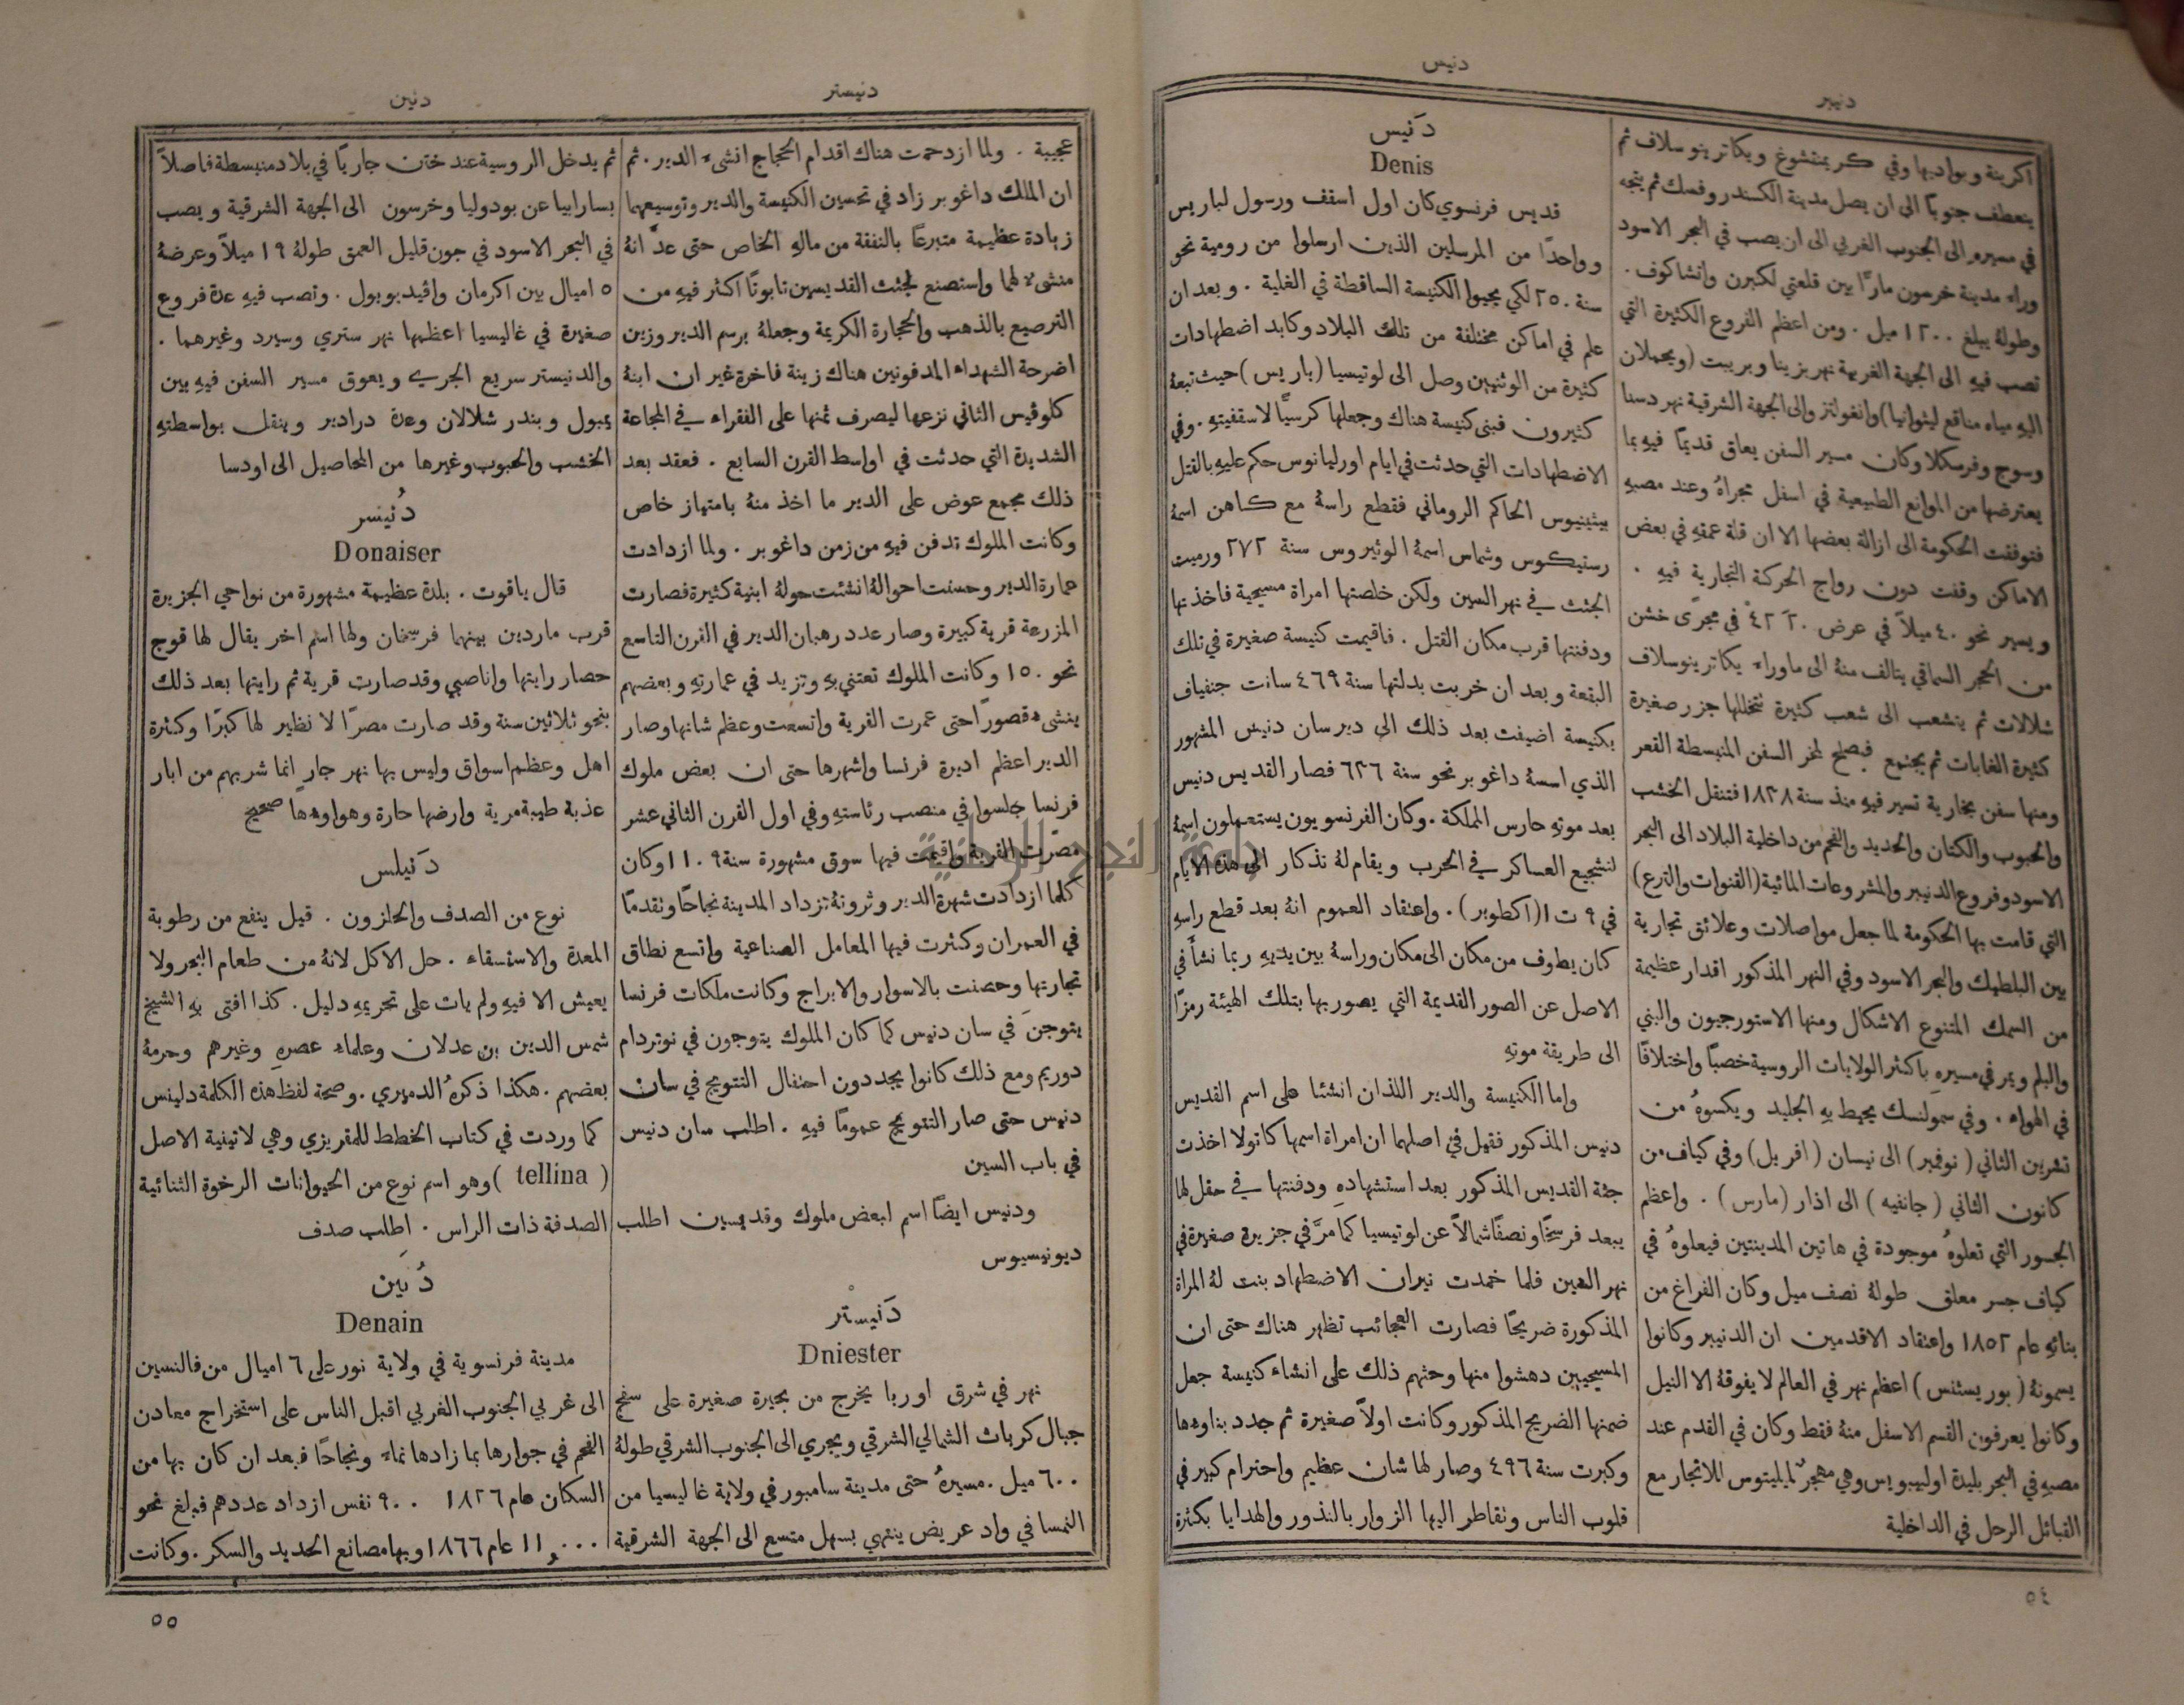 دنيبر
دنيس
اكرينة وبواديها وفي كريمنتشوغ ويكاترينوسلاف ثم
ينعطف جنوبًا الى ان يصل مدينة الكسندروفسك ثم يتجه
في مسيره الى الجنوب الغربي الى ان يصب في البحر الاسود
وراء مدينة خرسون مارًّا بين قلعتي لكبرن وانشاكوف.
وطولهُ يبلغ ١٢٠٠ ميل. ومن اعظم الفروع الكثيرة التي
تصب فيهِ الى الجهة الغربية نهر بزينا وبريبت (ويحملان
اليهِ مياه مناقع ليثوانيا) وانغولتز والى الجهة الشرقية نهر دسنا
وسوج وفرسكلا وكان مسير السفن يعاق قديمًا فيهِ بما
يعترضها من الموانع الطبيعية في اسفل مجراهُ وعند مصبهِ
فتوفقت الحكومة الى ازالة بعضها الا ان قلة عمقهِ في بعض
الاماكن وقفت دون رواج الحركة التجارية فيهِ.
ويسير نحو ٤٠ ميلاً في عرض ٢٠ ٤٢ في مجرًى خشن
من الحجر السماقي يتالف منهُ الى ما وراء يكاترينوسلاف
شلالات ثم ينشعب الى شعب كثيرة تتخللها جزر صغيرة
كثيرة الغابات ثم يجتمع فيصلح لمخر السفن المنبسطة القعر
ومنها سفن بخارية تسير فيهِ منذ سنة ١٨٢٨ فتنقل الخشب
والحبوب والكتان والحديد والفحم من داخلية البلاد الى البحر
الاسود وفروع الدنيبر والمشروعات المائية (القنوات والترع)
التي قامت بها الحكومة لما جعل مواصلات وعلائق تجارية
بين البلطيك والبحر الاسود وفي النهر المذكور اقدار عظيمة
من السمك المتنوع الاشكال ومنها الاستورجيون والبني
والبلم ويمر في مسيرهِ باكثر الولايات الروسية خصبًا واختلافًا
في الهواء. وفي سمولنسك يحيط بهِ الجليد ويكسوهُ من
تشرين الثاني (نوفمبر) الى نيسان (افريل) وفي كياف من
كانون الثاني (جانفيه) الى اذار (مارس). واعظم
الجسور التي تعلوهُ موجودة في هاتين المدينتين فيعلوهُ في
كياف جسر معلق طولهُ نصف ميل وكان الفراغ من
بنائهِ عام ١٨٥٢ واعتقاد الاقدمين ان الدنيبر وكانوا
يسمونهُ (بوريستنس) اعظم نهر في العالم لا يفوقهُ الا النيل
وكانوا يعرفون القسم الاسفل منهُ فقط وكان في القدم عند
مصبهِ في البحر بليدة اوليبويس وهي مهجرٌ لميليتوس للاتجار مع
القبائل الرحل في الداخلية
دَنيس
Denis
قديس فرنسوي كان اول اسقف ورسول لباريس
وواحدًا من المرسلين الذين ارسلوا من رومية نحو
سنة ٢٥٠ لكي يحيوا الكنيسة الساقطة في الغلية. وبعد ان
علم في اماكن مختلفة من تلك البلاد وكابد اضطهادات
كثيرة من الوثنيين وصل الى لوتيسيا (باريس) حيث تبعهُ
كثيرون فبنى كنيسة هناك وجعلها كرسيًّا لاسقفيتهِ. وفي
الاضطهادات التي حدثت في ايام اورليانوس حكم عليهِ بالقتل
بيثينيوس الحاكم الروماني فقطع راسهُ مع كاهن اسمهُ
رستيكوس وشماس اسمهُ الوثيروس سنة ٢٧٢ ورميت
الجثث في نهر السين ولكن خلصتها امراة مسيحية فاخذتها
ودفنتها قرب مكان القتل. فاقيمت كنيسة صغيرة في تلك
البقعة وبعد ان خربت بدلتها سنة ٤٦٩ سانت جنفياف
بكنيسة اضيفت بعد ذلك الى دير سان دنيس المشهور
الذي اسسهُ داغوبر نحو سنة ٦٢٦ فصار القديس دنيس
بعد موتهِ حارس المملكة. وكان الفرنسويون يستعملون اسمهُ
لتشجيع العساكر في الحرب ويقام لهُ تذكار الى هذه الايام
في ٩ ت ١ (اكطوبر). واعتقاد العموم انهُ بعد قطع راسهِ
كان يطوف من مكان الى مكان وراسهُ بين يديهِ ربما نشأ في
الاصل عن الصور القديمة التي يصور بها بتلك الهيئة رمزًا
الى طريقة موتهِ
واما الكنيسة والدير اللذان انشئا على اسم القديس
دنيس المذكور فقيل في اصلهما ان امراة اسمها كاتولا اخذت
جثة القديس المذكور بعد استشهادهِ ودفنتها في حقل لها
يبعد فرسخًا ونصفًا شمالاً عن لوتيسيا كما مرَّ في جزيرة صغيرة في
نهر السين فلما خمدت نيران الاضطهاد بنت لهُ المراة
المذكورة ضريحًا فصارت العجائب تظهر هناك حتى ان
المسيحيين دهشوا منها وحثهم ذلك على انشاء كنيسة جعل
ضمنها الضريح المذكور وكانت اولاً صغيرة ثم جدد بناوءها
وكبرت سنة ٤٩٦ وصار لها شان عظيم واحترام كبير في
قلوب الناس وتقاطر اليها الزوار بالنذور والهدايا بكثرة
٥٤
دنيستر
دنين
عجيبة. ولما ازدحمت هناك اقدام الحجاج انشىء الدير. ثم
ان الملك داغوبر زاد في تحسين الكنيسة والدير وتوسيعهما
زيادة عظيمة متبرعًا بالنفقة من مالهِ الخاص حتى عدَّ انهُ
منشىء لهما واستصنع لجثث القديسين تابوتًا اكثر فيهِ من
الترصيع بالذهب والحجارة الكريمة وجعلهُ برسم الدير وزين
اضرحة الشهداء المدفونين هناك زينة فاخرة غير ان ابنهُ
كلوڤيس الثاني نزعها ليصرف ثمنها على الفقراء في المجاعة
الشديدة التي حدثت في اواسط القرن السابع. فعقد بعد
ذلك مجمع عوض على الدير ما اخذ منهُ بامتياز خاص
وكانت الملوك تدفن فيهِ من زمن داغوبر. ولما ازدادت
عمارة الدير وحسنت احوالهُ انشئت حولهُ ابنية كثيرة فصارت
المزرعة قرية كبيرة وصار عدد رهبان الدير في القرن التاسع
نحو ١٥٠ وكانت الملوك تعتني بهِ وتزيد في عمارتهِ وبعضهم
ينشىء قصورًا حتى عمرت القرية واتسعت وعظم شانها وصار
الدير اعظم اديرة فرنسا واشهرها حتى ان بعض ملوك
فرنسا جلسوا في منصب رئاستهِ وفي اول القرن الثاني عشر
مصّرت القرية واقيمت فيها سوق مشهورة سنة ١١٠٩ وكان
كلما ازدادت شهرة الدير وثروتهُ تزداد المدينة نجاحًا وتقدمًا
في العمران وكثرت فيها المعامل الصناعية واتسع نطاق
تجارتها وحصنت بالاسوار والابراج وكانت ملكات فرنسا
يتوجنَ في سان دنيس كما كان الملوك يتوجون في نوتردام
دوريم ومع ذلك كانوا يجددون احتفال التتويج في سان
دنيس حتى صار التتويج عمومًا فيهِ. اطلب سان دنيس
في باب السين
ودنيس ايضًا اسم لبعض ملوك وقديسين اطلب
ديونيسيوس
دَنيستر
Dniester
نهر في شرق اوربا يخرج من بحيرة صغيرة على سفح
جبال كربات الشمالي الشرقي ويجري الى الجنوب الشرقي طولهُ
٦٠٠ ميل. مسيرهُ حتى مدينة سامبور في ولاية غاليسيا من
النمسا في واد عريض ينتهي بسهل متسع الى الجهة الشرقية
ثم يدخل الروسية عند ختن جاريًا في بلاد منبسطة فاصلاً
بسارابيا عن بودوليا وخرسون الى الجهة الشرقية ويصب
في البحر الاسود في جون قليل العمق طولهُ ١٩ ميلاً وعرضهُ
٥ اميال بين اكرمان واڤيديوبول. وتصب فيهِ عدة فروع
صغيرة في غاليسيا اعظمها نهر ستري وسيرد وغيرهما.
والدنيستر سريع الجري ويعوق مسير السفن فيهِ بين
يمبول وبندر شلالان وعدة درادير وينقل بواسطتهِ
الخشب والحبوب وغيرها من المحاصيل الى اودسا
دُنَيسر
Donaiser
قال ياقوت. بلدة عظيمة مشهورة من نواحي الجزيرة
قرب ماردين بينهما فرسخان ولها اسم اخر يقال لها قوج
حصار رايتها وانا صبي وقد صارت قرية ثم رايتها بعد ذلك
بنحو ثلاثين سنة وقد صارت مصرًا لا نظير لها كبرًا وكثرة
اهل وعظم اسواق وليس بها نهر جارٍ انما شربهم من ابار
عذبة طيبة مرية وارضها حارة وهواوءها صحيح
دَنيلس
نوع من الصدف والحلزون. قيل ينفع من رطوبة
المعدة والاستسقاء. حل الاكل لانهُ من طعام البحر ولا
يعيش الا فيهِ ولم يات على تحريمهِ دليل. كذا افتى بهِ الشيخ
شمس الدين بن عدلان وعلماء عصرهِ وغيرهم وحرمهُ
بعضهم. هكذا ذكرهُ الدميري. وصحة لفظ هذه الكلمة دلينس
كما وردت في كتاب الخطط للمقريزي وهي لاتينية الاصل
(tellina) وهو اسم نوع من الحيوانات الرخوة الثنائية
الصدفة ذات الراس. اطلب صدف
دُنَين
Denain
مدينة فرنسوية في ولاية نور على ٦ اميال من فالنسين
الى غربي الجنوب الغربي اقبل الناس على استخراج معادن
الفحم في جوارها بما زادها نماء ونجاحًا فبعد ان كان بها من
السكان عام ١٨٢٦ ٩٠٠ نفس ازداد عددهم فبلغ نحو
١١٫٠٠٠ عام ١٨٦٦ وبها مصانع الحديد والسكر. وكانت
٥٥
جامعة النجاح الوطنية